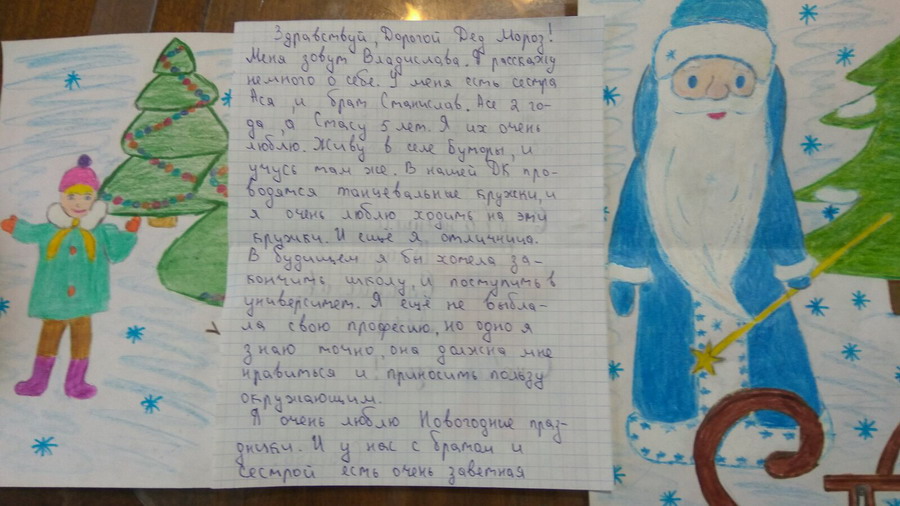 Здравствуй, Дорогой Дед Мороз!
Меня зовут Владислава. Я расскажу
немного о себе. У меня есть сестра
Ася и брат Станислав. Асе 2 го-
да, а Стасу 5 лет. Я их очень
люблю. Живу в селе Буторы, и
учусь там же. В нашей ДК про-
водятся танцевальные кружки, и
я очень люблю ходить на эти
кружки. И ещё я отличница.
В будищем я бы хотела за-
кончить школу, и поступить в
университет. Я ещё не выбла-
ла свою професию, но одно я
знаю точно, она должна мне
нравиться и приносить пользу
окружающим.
Я очень люблю Новогодние праз-
дники. И у нас с братом и
сестрой есть очень заветная